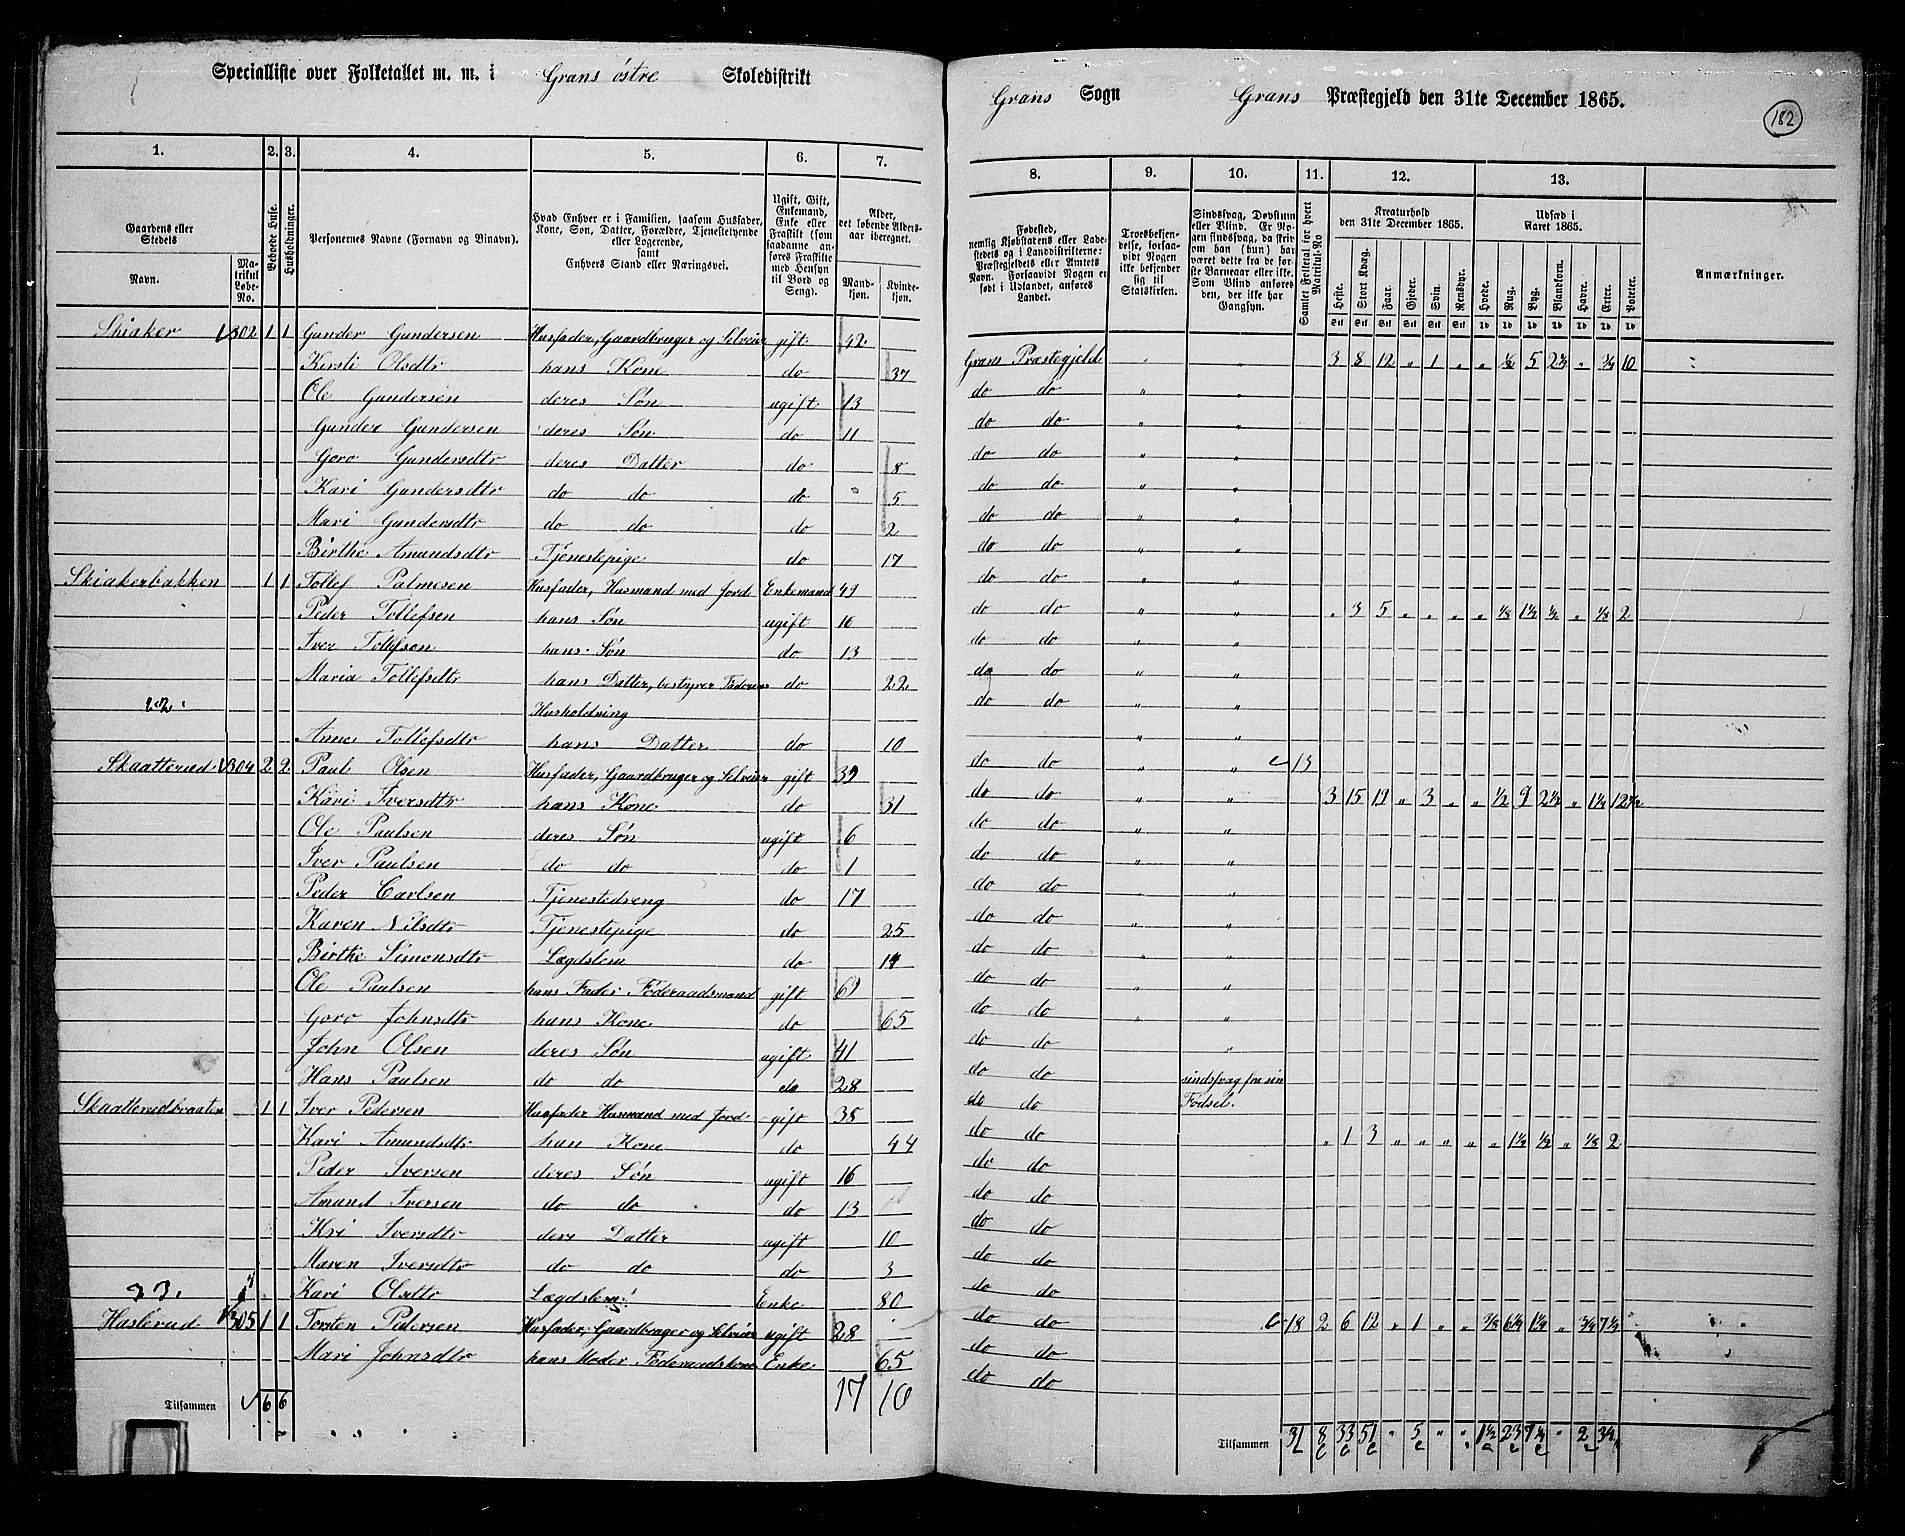 Specialliste over Folketallet m. m. i Grans østre Skoledistrikt
Grans Sogn Grans Præstegjeld den 31te December 1865.
182
1. 2. 3. 4. 5. 6. 7.
8. 9. 10. 11. 12. 13.
Gaardens eller Stedets
Navn. Matrikul Løbe-No.
Beboede Huse.
Husholdninger.
Personernes Navne (Fornavn og Binavn).
Hvad Enhver er i Familien, saasom Husfader, Kone, Søn, Datter, Forældre, Tjenestetyende eller Logerende, samt Enhvers Stand eller Næringsvei.
Ugift, Gift, Enkemand, Enke eller Fraskilt (som saadanne anføres Fraskilte med Hensyn til Bord og Seng).
Alder, det løbende Aldersaar iberegnet.
Mandkjøn. Kvindekjøn.
Fødested, nemlig Kjøbstadens eller Ladestedets og i Landdistrikterne: Præstegjeldets eller Amtets Navn. Forsaavidt Nogen er født i Udlandet, anføres Landet.
Troesbekjendelse, forsaavidt Nogen ikke bekjender sig til Statskirken.
Sindssvag, Døvstum eller Blind. Er Nogen sindssvag, da skrives om han (hun) har været dette fra de første Barneaar eller ikke. Som Blind anføres den, der ikke har Gangsyn.
Samlet Folketal for hvert Matrikul-No
Kreaturhold den 31te December 1865.
Heste. Stort Kvæg. Faar. Gjeder. Svin. Rensdyr.
Udsæd i Aaret 1865.
Hvede. Rug. Byg. Blandkorn. Havre. Erter. Poteter.
Anmærkninger.
Skiaker 302 1 1 Gunder Gundersen Husfader, Gaardbruger og Selveier gift 42 Grans Præstegjeld 3 8 12 " 1 " " 1/2 5 2 1/2 " 3/4 10
Kirsti Olsdtr hans Kone do 37 do do
Ole Gundersen deres Søn ugift 13 do do
Gunder Gundersen deres Søn do 11 do do
Goro Gundersdtr deres Datter do 8 do do
Kari Gundersdtr do do do 5 do do
Mari Gundersdtr do do do 2 do do
Birthe Amundsdtr Tjenestepige do 17 do do
Skiakerbakken 1 1 Tollef Palmesen Husfader, Husmand med Jord Enkemand 49 do do " 3 5 " " " " 1/8 1 1/2 1/2 " 1/8 2
Peder Tollefsen hans Søn ugift 16 do do
Iver Tollefsen hans Søn do 13 do do
Maria Tollefsdtr hans Datter, bestyrer Faderens do 22 do do
Husholdning
Anne Tollefsdtr hans Datter do 10 do do 13
Skaatterud 304 2 2 Paul Olsen Husfader, Gaardbruger og Selveier gift 39 do do 3 15 19 " 3 " " 1/2 9 2 1/2 " 1 1/4 12 1/2
Kari Iversdtr hans Kone do 31 do do
Ole Paulsen deres Søn ugift 6 do do
Iver Paulsen do do do 1 do do
Peder Carlsen Tjenestedreng do 17 do do
Karen Nilsdtr Tjenestepige do 25 do do
Birthe Simensdtr Lægdslem do 14 do do
Ole Paulsen hans Fader Føderaadsmand gift 69 do do
Goro Johnsdtr hans Kone do 65 do do
John Olsen deres Søn ugift 41 do do
Hans Paulsen do do do 28 do do sindsfvag fra sin Fødsel.
Skaatterudbraaten 1 1 Iver Pedersen Husfader Husmand med Jord gift 35 do do " 1 3 " " " " " 1 1/4 1/2 " 1/8 2
Kari Amundsdtr han Kone do 44 do do
Peder Iversen deres Søn ugift 16 do do
Amund Iversen do do do 13 do do
Kri Iversdtr ders Datter ugift 10 do do
Maren Iversdtr do do do 3 do do
Kari Olsdtr Lægdslem Enke 80 do do 18
Haslerud 305 1 1 Torsten Pedersen Husfader, Gaardbruger og Selveier ugift 28 do do 2 6 12 " 1 " " 3/8 6 1/4 1 1/4 " 3/4 7 1/2
Mari Johnsdtr hans Moder Føderaadskone Enke 65 do do
Tilsammen 6 6 17 16
Tilsammen 31 8 33 51 " 5 " " 1 1/2 23 " 2